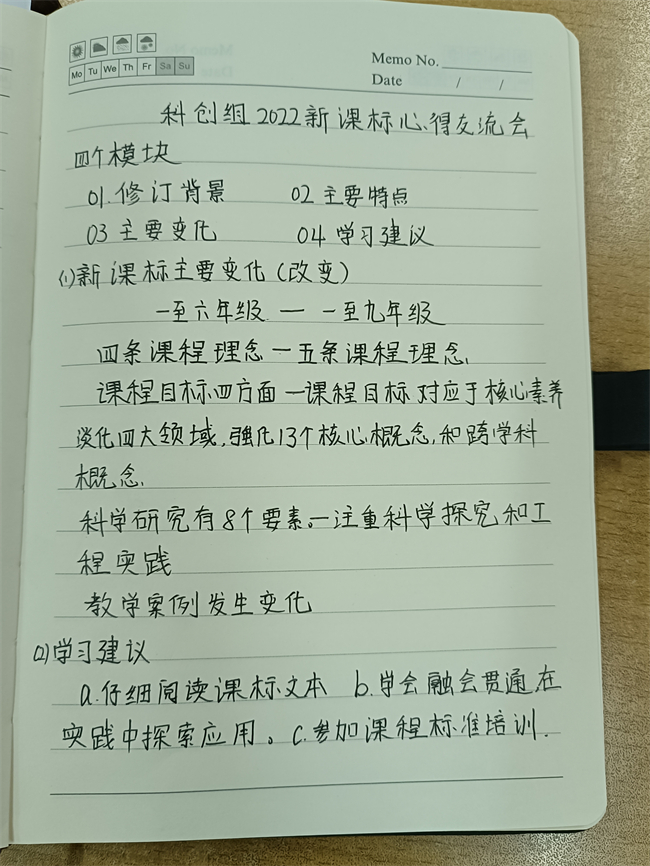 Memo No.
Mo Tu We Th Fr Sa Su
Date / /
科创组2022新课标心得交流会
四个模块
01.修订背景 02 主要特点
03 主要变化 04 学习建议
(1)新课标主要变化(改变)
一至六年级 — 一至九年级
四条课程理念—五条课程理念.
课程目标四方面—课程目标对应于核心素养
淡化四大领域,强化13个核心概念,和跨学科
概念.
科学研究有8个要素。—注重科学探究和工
程实践
教学案例发生变化
(2)学习建议
a.仔细阅读课标文本 b.学会融会贯通在
实践中探索应用。c.参加课程标准培训.